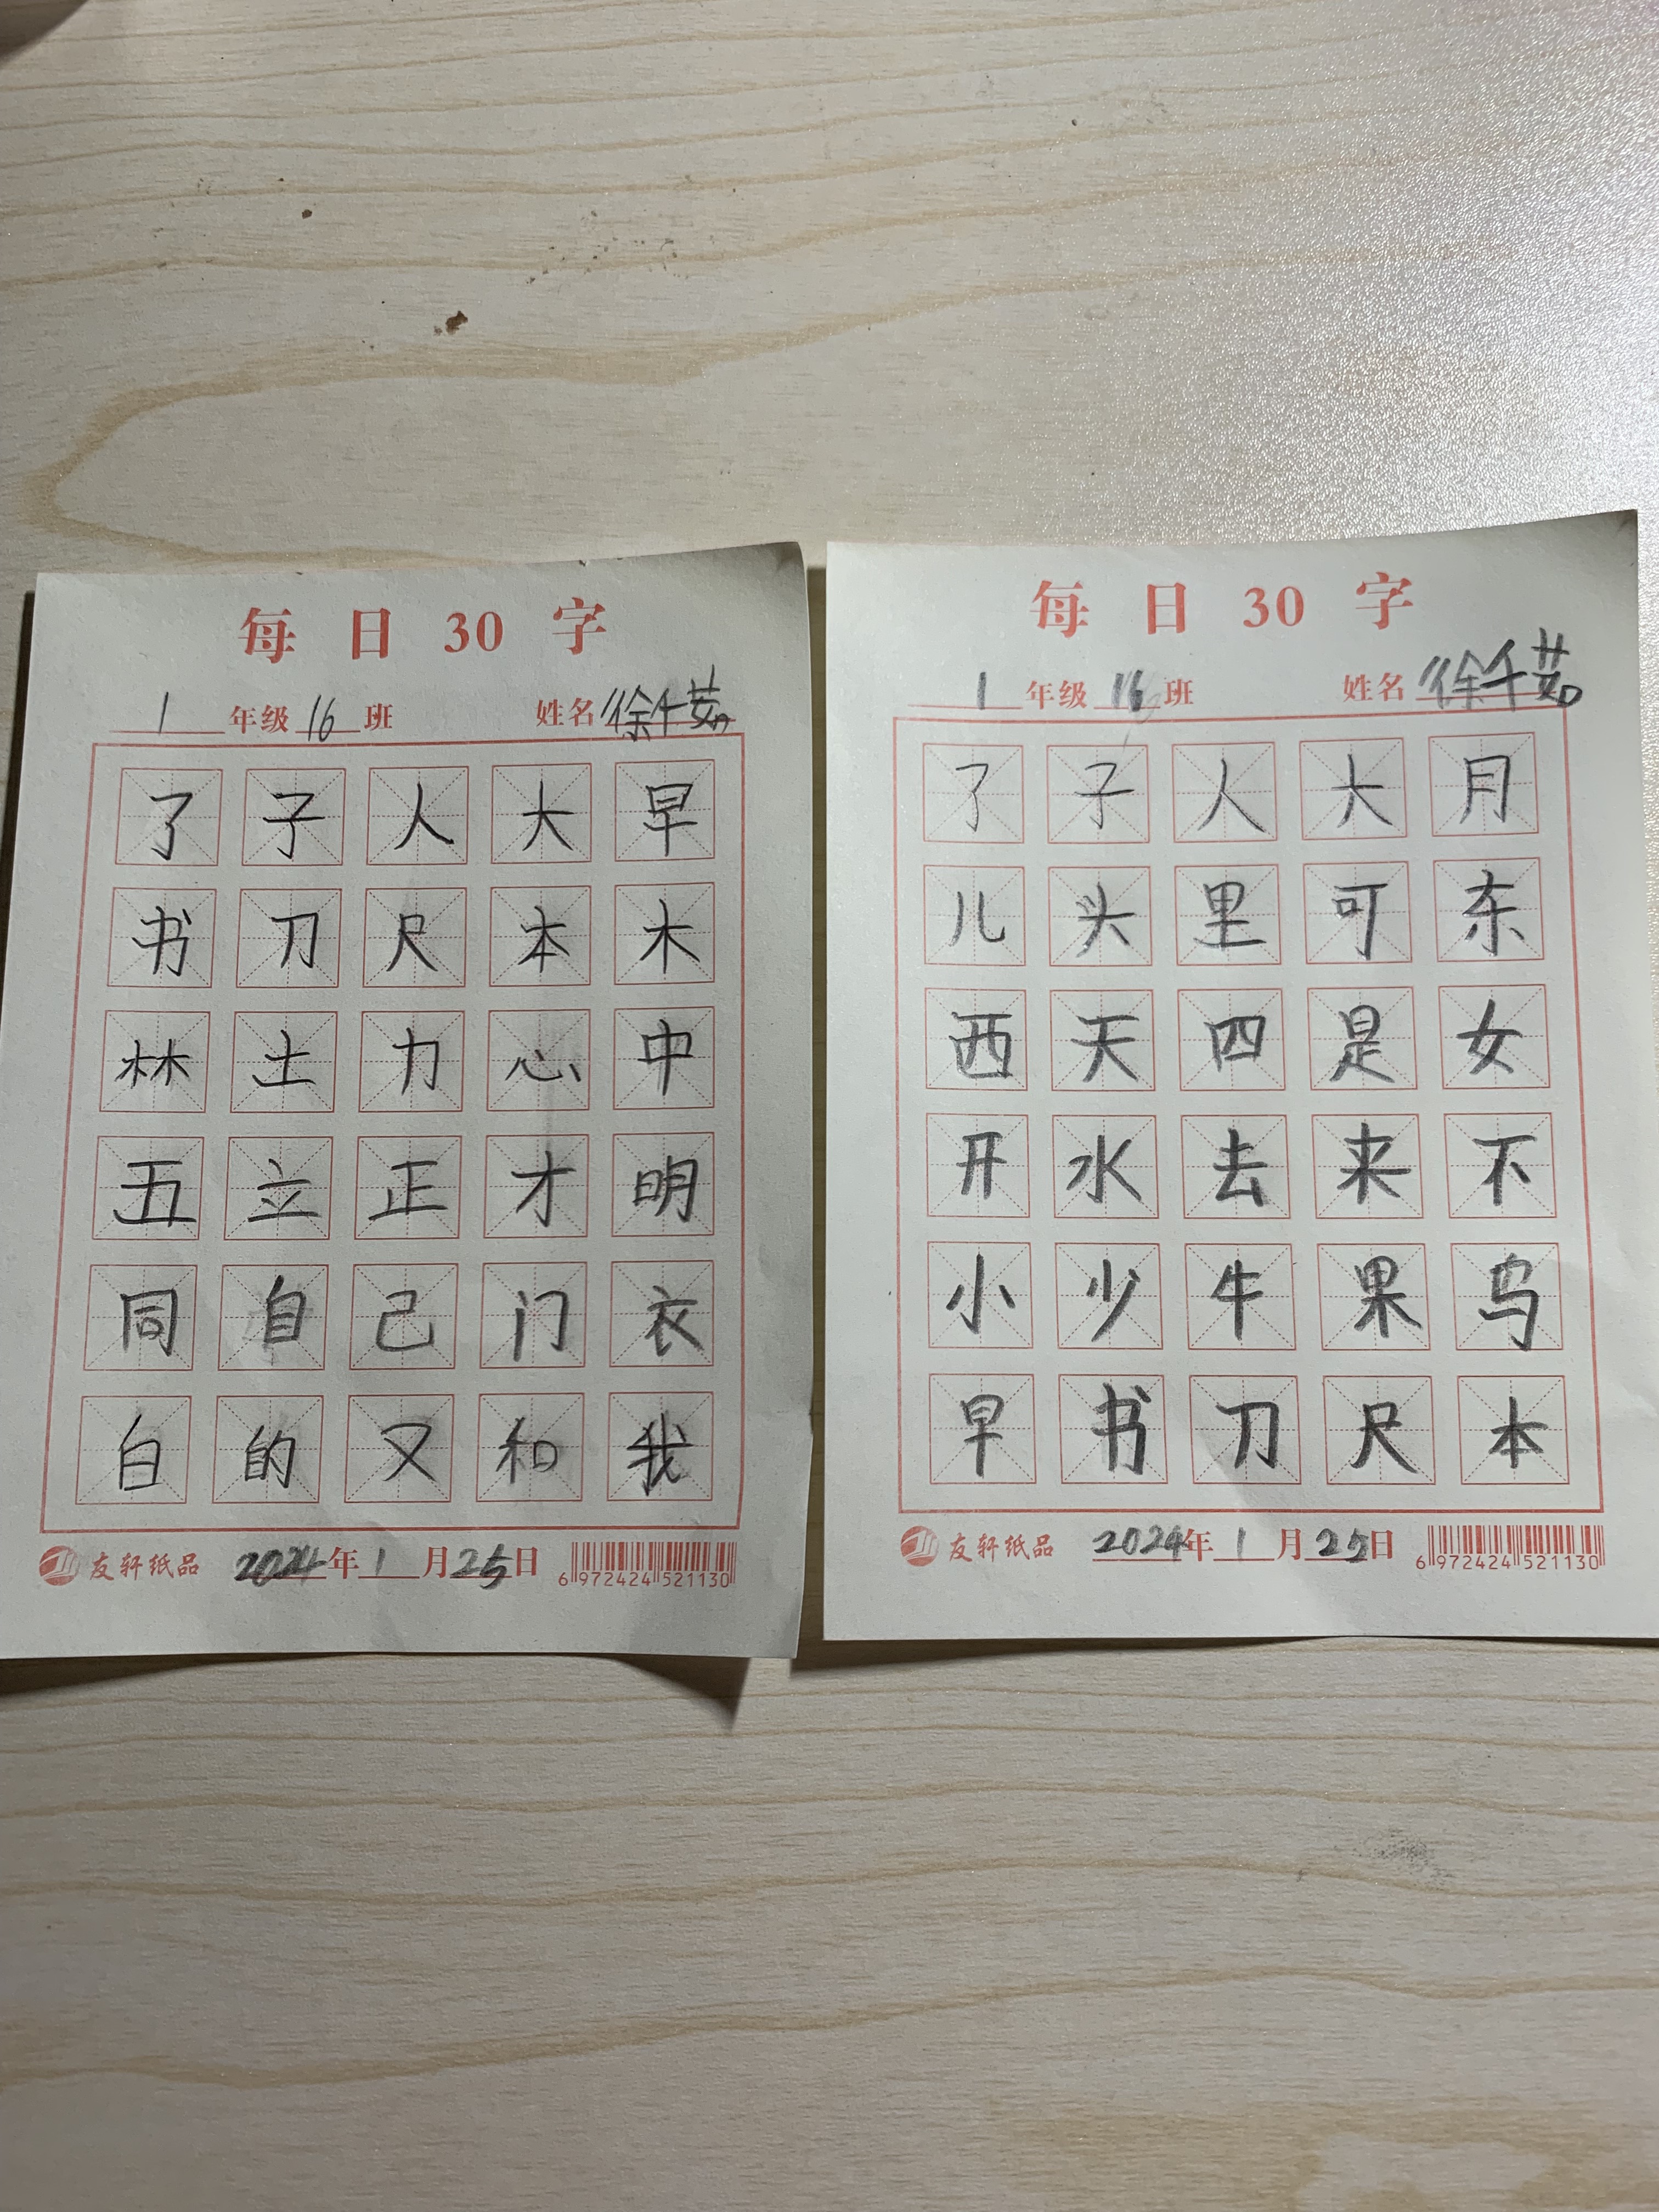 每日30字
1年级16班 姓名徐千茹
了子人大早
书刀尺本木
林土力心中
五立正才明
同自己门衣
白的又和我
友轩纸品 2024年1月25日
6 972424 521130
每日30字
1年级16班 姓名徐千茹
了子人大月
儿头里可东
西天四是女
开水去来不
小少牛果鸟
早书刀尺本
友轩纸品 2024年1月25日
6 972424 521130